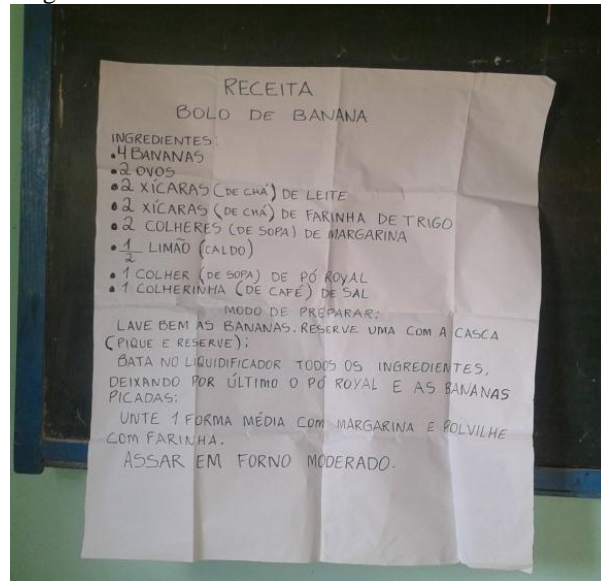 RECEITA
BOLO DE BANANA
INGREDIENTES:
• 4 BANANAS
• 2 OVOS
• 2 XÍCARAS (DE CHÁ) DE LEITE
• 2 XÍCARAS (DE CHÁ) DE FARINHA DE TRIGO
• 2 COLHERES (DE SOPA) DE MARGARINA
• 1/2 LIMÃO (CALDO)
• 1 COLHER (DE SOPA) DE PÓ ROYAL
• 1 COLHERINHA (DE CAFÉ) DE SAL
MODO DE PREPARAR:
LAVE BEM AS BANANAS. RESERVE UMA COM A CASCA
(PIQUE E RESERVE);
BATA NO LIQUIDIFICADOR TODOS OS INGREDIENTES,
DEIXANDO POR ÚLTIMO O PÓ ROYAL E AS BANANAS
PICADAS;
UNTE 1 FORMA MÉDIA COM MARGARINA E POLVILHE
COM FARINHA.
ASSAR EM FORNO MODERADO.